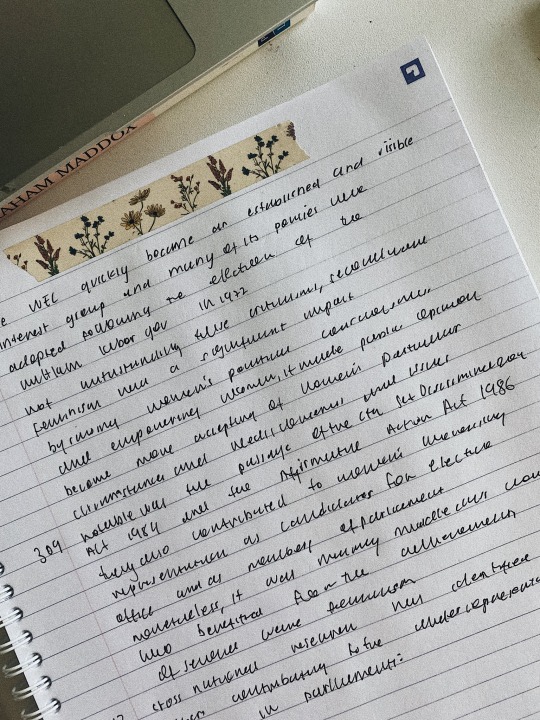 AHAM MADDOX
WEL quickly became an established and visible
interest group and many of its policies were
adopted following the election of the
whitlam labor gov in 1972
not withstanding these criticisms, second wave
feminism had a significant impact
by raising women's political consciousness
and empowering women, it made public opinion
become more accepting of women's particular
circumstances and needs, concerns and issues
notable was the passage of the cth Sex Discrimination
Act 1984 and the Affirmative Action Act 1986
309 they also contributed to women's increasing
representation as candidates for elective
office and as members of parliament
nonetheless, it was mainly middle class
who benefited from the achievements
of second wave feminism
cross national research has identified
contributing to the underrepresentation
in parliament: